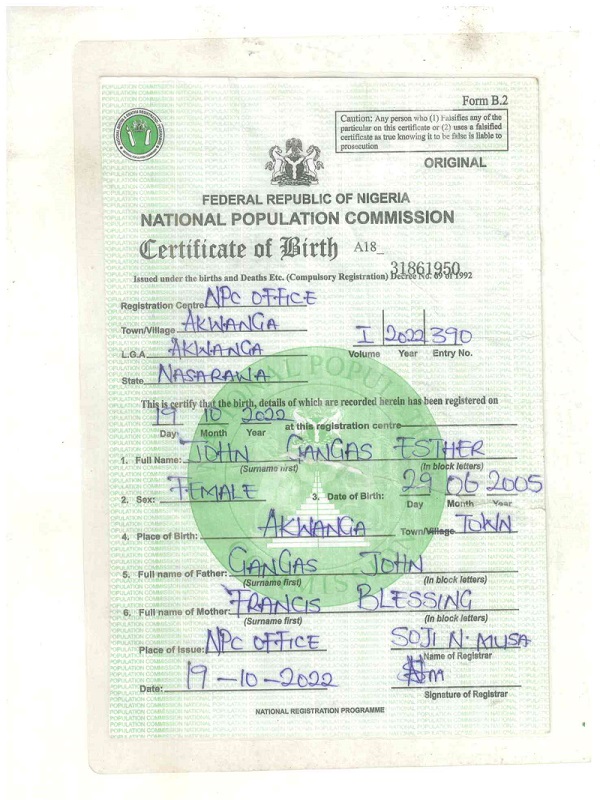 Form B.2
Caution: Any person who (1) Falsifies any of the
particular on this certificate or (2) uses a falsified
certificate as true knowing it to be false is liable to
prosecution
ORIGINAL
FEDERAL REPUBLIC OF NIGERIA
NATIONAL POPULATION COMMISSION
Certificate of Birth A18_ 31861950
Issued under the births and Deaths Etc. (Compulsory Registration) Decree No. 69 of 1992
Registration Centre NPC OFFICE
Town/Village AKWANGA
L.G.A AKWANGA
I 2022 390
Volume Year Entry No.
State NASARAWA
This is certify that the birth, details of which are recorded herein has been registered on
19 10 2022 at this registration centre
Day Month Year
1. Full Name: JOHN GANGAS ESTHER
(Surname first) (In block letters)
2. Sex: FEMALE 3. Date of Birth: 29 06 2005
Day Month Year
4. Place of Birth: AKWANGA Town/Village TOWN
5. Full name of Father: GANGAS JOHN
(Surname first) (In block letters)
6. Full name of Mother: FRANCIS BLESSING
(Surname first) (In block letters)
Place of Issue: NPC OFFICE SOJI N. MUSA
Name of Registrar
Date: 19-10-2022
Signature of Registrar
NATIONAL REGISTRATION PROGRAMME